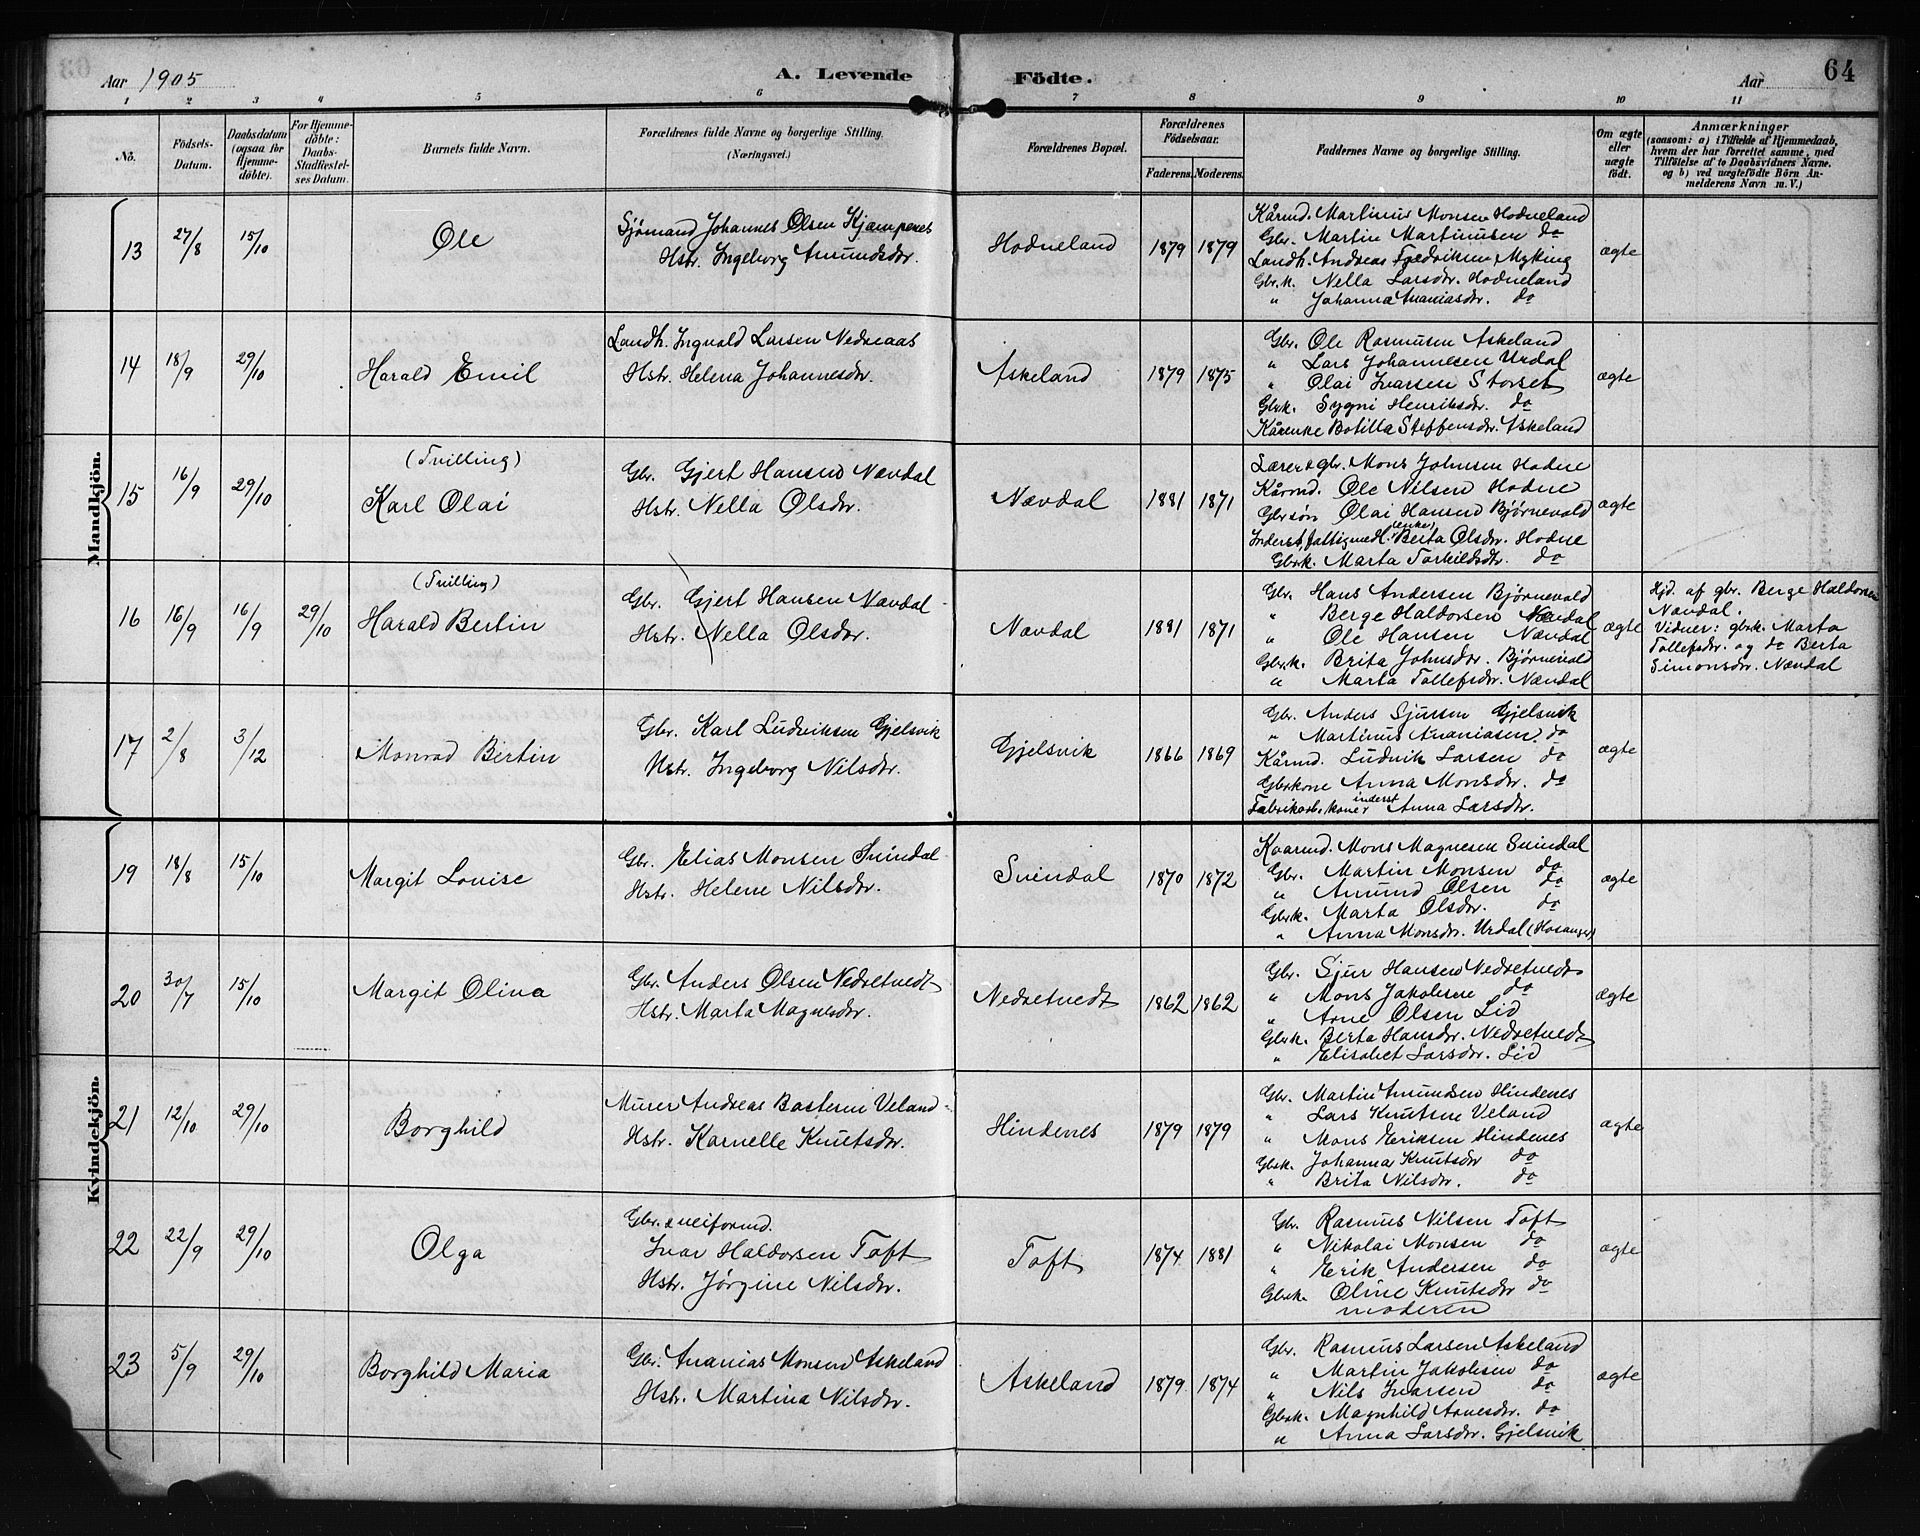 Aar 1905
A. Levende
Födte.
Aar
64
1 2 3 4 5 6 7 8 9 10 11
No.
Födsels-
Datum.
Daabsdatum
(ogsaa for
Hjemme-
döbte).
For Hjemme-
döbte:
Daabs-
Stadfæstel-
ses Datum.
Barnets fulde Navn.
Forældrenes fulde Navne og borgerlige Stilling.
(Næringsvei.)
Forældrenes Bopæl.
Forældrenes
Födselsaar.
Faderens. Moderens.
Faddernes Navne og borgerlige Stilling.
Om ægte
eller
uægte
födt.
Anmærkninger
(saasom: a) i Tilfælde af Hjemmedaab,
hvem der har forrettet samme, med
Tilföielse af to Daabsvidners Navne,
og b) ved uægtefödte Börn An-
melderens Navn m. V.)
Mandkjön.
13 27/8 15/10 Ole
Sjömand Johannes Olsen Kjæmpenes
Hstr. Ingeborg Amundsdr.
Hodneland 1879 1879
Kårmd. Martinus Monsen Hodneland
Gbr. Martin Martinusen do
Landh. Andreas Fredriksen Myking
Gbr.k. Nella Larsdr. Hodneland
" Johanna Ananiasdr. do
ægte
14 18/9 29/10 Harald Emil
Landh. Ingvald Larsen Nedreaas
Hstr. Helena Johannesdr.
Askeland 1879 1875
Gbr. Ole Rasmusen Askeland
" Lars Johannesen Urdal
" Olai Ivarsen Storset
Gbrk. Sygni Henriksdr. do
Kårenke Botilla Steffensdr. Askeland
ægte
15 16/9 29/10 (Tvilling)
Karl Olai
Gbr. Gjert Hansen Nævdal
Hstr. Nella Olsdr.
Nævdal 1881 1871
Lærer & gbr. Mons Johnsen Hodne
Kårmd. Ole Nilsen Hodne
Gbrsön Olai Hansen Bjørnevald
Inderst, fattigmedl. (enke) Berta Olsdr. Hodne
Gbrk. Marta Torkildsdr. do
ægte
16 16/9 16/9 29/10 (Tvilling)
Harald Bertin
Gbr. Gjert Hansen Nævdal
Hstr. Nella Olsdr.
Nævdal 1881 1871
Gbr. Hans Andersen Bjørnevald
" Berge Haldorsen Nævdal
" Ole Hansen Nævdal
Gbrk. Brita Johnsdr. Bjørnevald
" Marta Tollefsdr. Nævdal
ægte
Hjd. af gbr. Berge Haldorsen
Nævdal.
Vidner: gbrk. Marta
Tollefsdr. og do Berta
Simonsdr. Nævdal
17 2/8 3/12 Monrad Bertin
Gbr. Karl Ludviksen Gjelsvik
Hstr. Ingeborg Nilsdr.
Gjelsvik 1866 1869
Gbr. Anders Sjursen Gjelsvik
" Martinus Ananiasen do
Kårmd. Ludvik Larsen do
Gbrkone Anna Monsdr. do
Fabrikarb. kone, inderst Anna Larsdr.
ægte
Kvindekjön.
19 18/8 15/10 Margit Louise
Gbr. Elias Monsen Svindal
Hstr. Helene Nilsdr.
Svindal 1870 1872
Kaarmd. Mons Magnesen Svindal
Gbr. Martin Monsen do
" Amund Olsen do
Gbrk. Marta Olsdr. do
" Anna Monsdr. Urdal (Hosanger)
ægte
20 30/7 15/10 Margit Olina
Gbr. Anders Olsen Nedretvedt
Hstr. Marta Magnesdr.
Nedretvedt 1862 1862
Gbr. Sjur Hansen Nedretvedt
" Mons Jakobsen do
" Arne Olsen Lid
Gbrk. Berta Hansdr. Nedretvedt
" Elisabet Larsdr. Lid
ægte
21 12/10 29/10 Borghild
Murer Andreas Basteren Veland
Hstr. Karnelle Knutsdr.
Hindenes 1879 1879
Gbr. Martin Amundsen Hindenes
" Lars Knutsen Veland
" Mons Eriksen Hindenes
Gbrk. Johanna Knutsdr do
" Brita Nilsdr. do
ægte
22 22/9 29/10 Olga
Gbr. & veiformd.
Ivar Haldorsen Toft
Hstr. Jørgine Nilsdr.
Toft 1874 1881
Gbr. Rasmus Nilsen Toft
" Nikolai Monsen do
" Erik Andersen do
Gbrk. Oline Knutsdr do
moderen
ægte
23 5/9 29/10 Borghild Maria
Gbr. Ananias Monsen Askeland
Hstr. Martina Nilsdr.
Askeland 1879 1874
Gbr. Rasmus Larsen Askeland
" Martin Jakobsen do
" Nils Ivarsen do
Gbrk. Magnhild Arnesdr. do
" Anna Larsdr. Gjelsvik
ægte